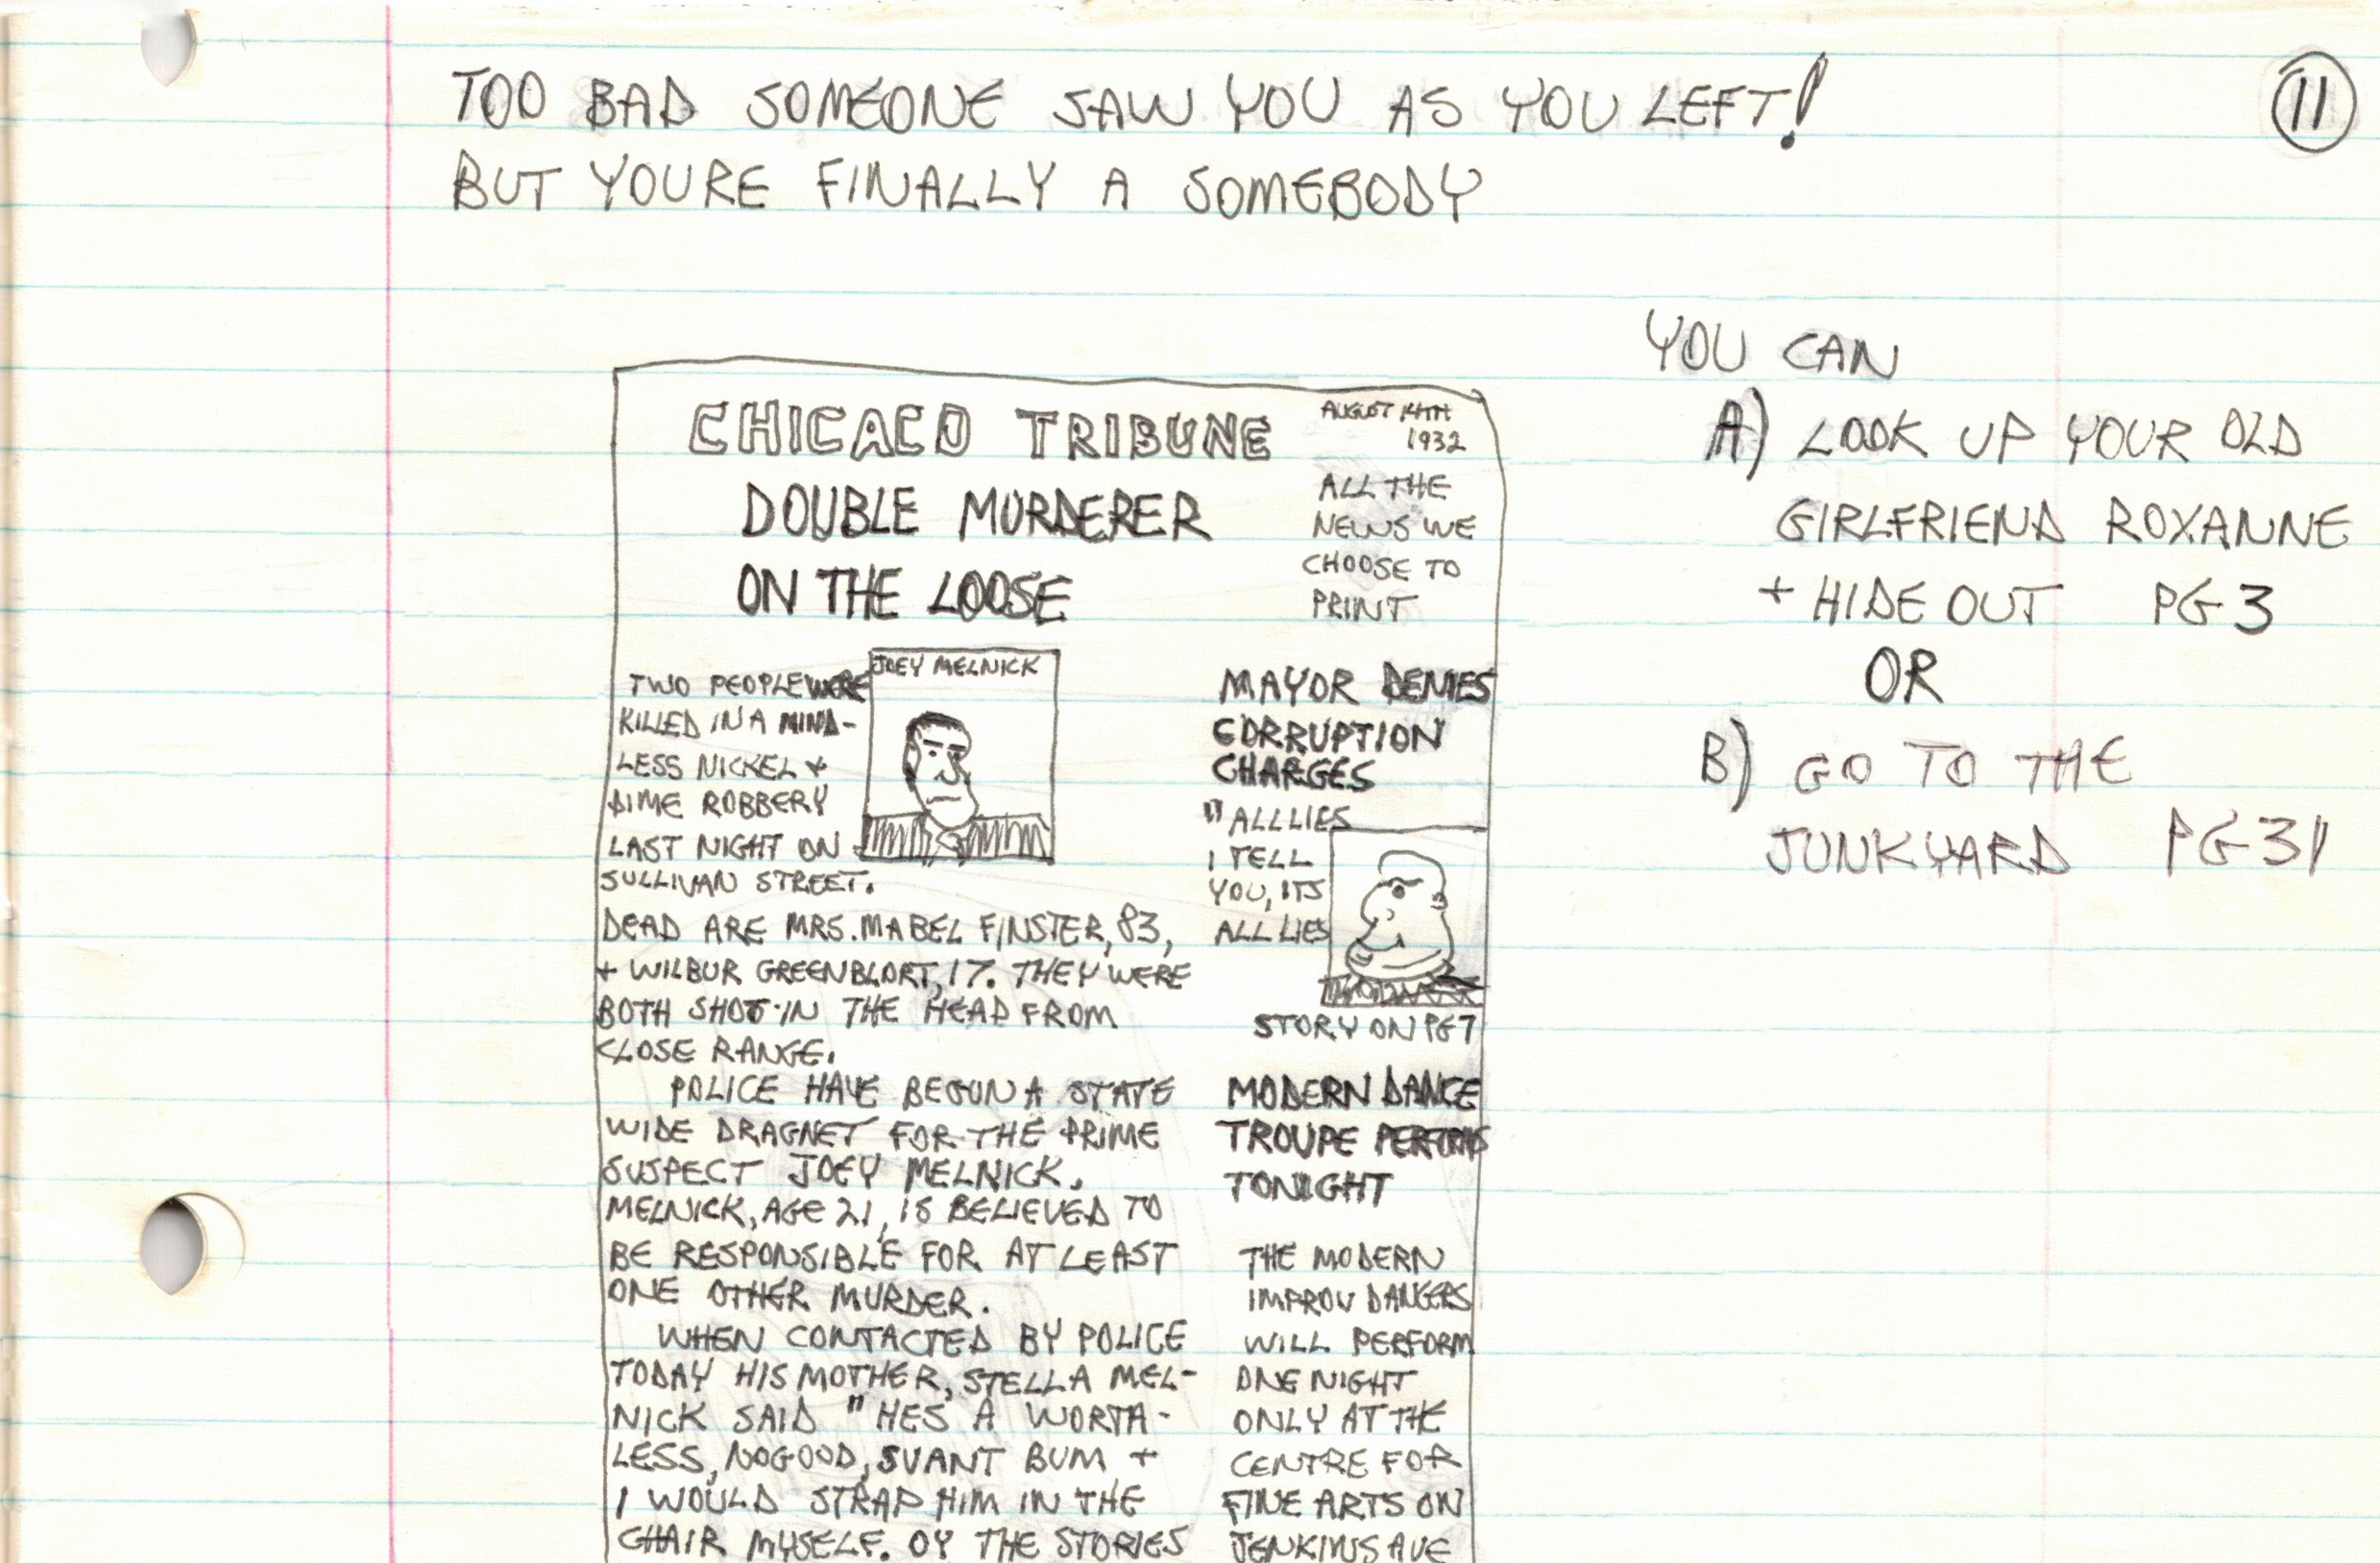 11
TOO BAD SOMEONE SAW YOU AS YOU LEFT!
BUT YOURE FINALLY A SOMEBODY
CHICACO TRIBUNE
AUGUST 14TH
1932
DOUBLE MURDERER
ON THE LOOSE
ALL THE
NEWS WE
CHOOSE TO
PRINT
JOEY MELNICK
TWO PEOPLE WERE
KILLED IN A MIND-
LESS NICKEL +
DIME ROBBERY
LAST NIGHT ON
SULLIVAN STREET.
DEAD ARE MRS. MABEL FINSTER, 83,
+ WILBUR GREENBLORT, 17. THEY WERE
BOTH SHOT IN THE HEAD FROM
CLOSE RANGE.
POLICE HAVE BEGUN A STATE
WIDE DRAGNET FOR THE PRIME
SUSPECT JOEY MELNICK.
MELNICK, AGE 21, IS BELIEVED TO
BE RESPONSIBLE FOR AT LEAST
ONE OTHER MURDER.
WHEN CONTACTED BY POLICE
TODAY HIS MOTHER, STELLA MEL-
NICK SAID "HES A WORTA-
LESS, NOGOOD, SVANT BUM +
I WOULD STRAP HIM IN THE
CHAIR MYSELF. OY THE STORIES
MAYOR DENIES
CORRUPTION
CHARGES
"ALL LIES
I TELL
YOU, ITS
ALL LIES
STORY ON PG 7
MODERN DANCE
TROUPE PERFORMS
TONIGHT
THE MODERN
IMPROV DANCERS
WILL PERFORM
ONE NIGHT
ONLY AT THE
CENTRE FOR
FINE ARTS ON
JENKINS AVE
YOU CAN
A) LOOK UP YOUR OLD
GIRLFRIEND ROXANNE
+ HIDE OUT PG 3
OR
B) GO TO THE
JUNKYARD PG 31